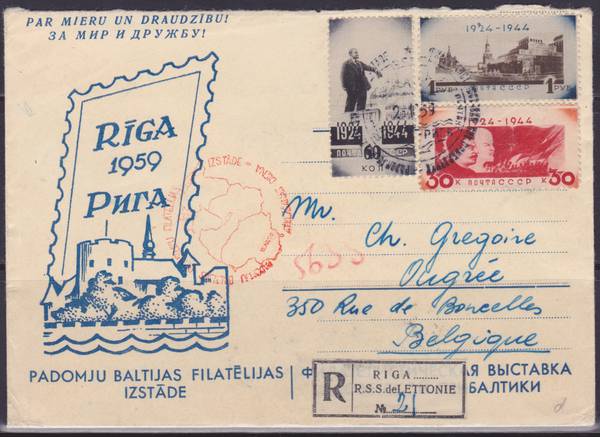 PAR MIERU UN DRAUDZĪBU!
ЗА МИР И ДРУЖБУ!
RĪGA
1959
РИГА
1924 1944
ПОЧТА
60
КОП
1924-1944
1 РУБ ПОЧТА СССР 1 РУБ
1924-1944
30 К ПОЧТА СССР К 30
IZSTĀDE
59
Mr.
Ch. Gregoire
Ougrée
350 Rue de Boncelles
Belgique
5633
PADOMJU BALTIJAS FILATĒLIJAS
IZSTĀDE
АЯ ВЫСТАВКА
БАЛТИКИ
R
RIGA
R.S.S. de LETTONIE
№ 21